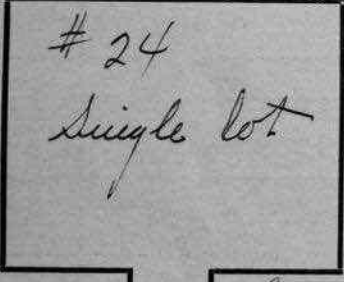 # 24
Single lot